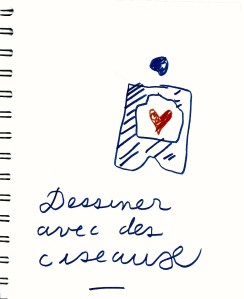 Dessiner
avec des
ciseaux